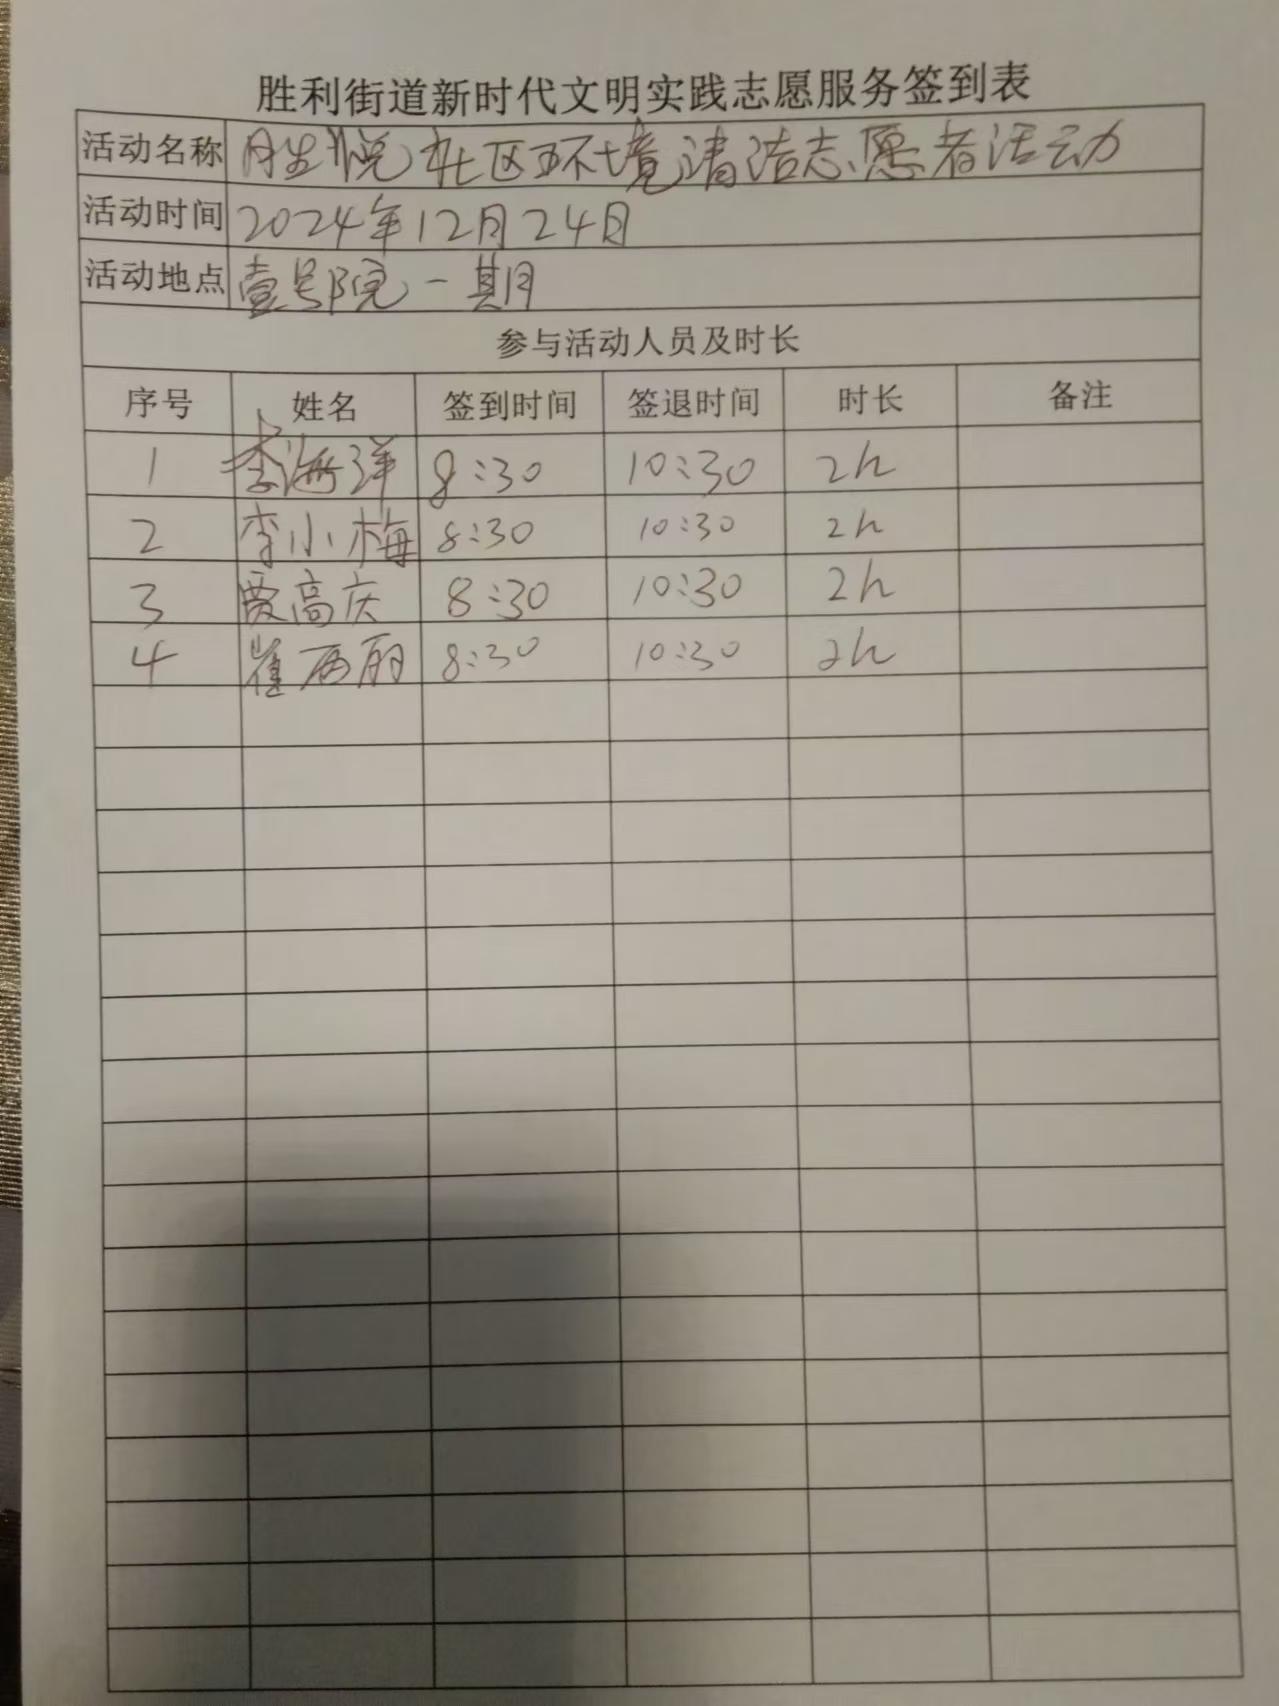 胜利街道新时代文明实践志愿服务签到表
活动名称 胜悦社区环境清洁志愿者活动
活动时间 2024年12月24日
活动地点 壹号院一期
参与活动人员及时长
序号 姓名 签到时间 签退时间 时长 备注
1 李海洋 8:30 10:30 2h
2 李小梅 8:30 10:30 2h
3 贾高庆 8:30 10:30 2h
4 崔丽 8:30 10:30 2h